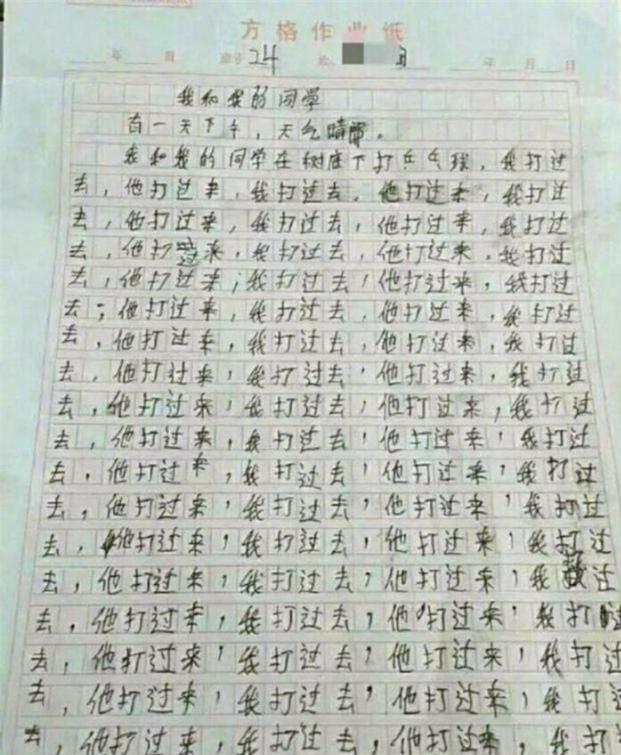 方格作业纸
年 月 24 年 月 日
我和我的同学
有一天下午,天气晴。
我和我的同学在树底下打乒乓球,我打过
去,他打过来,我打过去。他打过来,我打过
去,他打过来,我打过去,他打过来,我打过
去,他打过来,我打过去,他打过来,我打过
去,他打过来;我打过去,他打过来,我打过
去;他打过来,我打过去,他打过来,我打过
去,他打过来,我打过去,他打过来,我打过
去,他打过来,我打过去,他打过来,我打过
去,他打过来,我打过去,他打过来,我打过
去,他打过来,我打过去,他打过来,我打过
去,他打过来,我打过去,他打过来,我打过
去,他打过来,我打过去,他打过来,我打过
去,他打过来,我打过去,他打过来,我打过
去,他打过来,我打过去,他打过来,我过
去,他打过来,我打过去,他打过来,我打过
去,他打过来,我打过去,他打过来,我打过
去,他打过来,我打过去,他打过来,我打过
去,他打过来,我打过去,他打过来,我打过